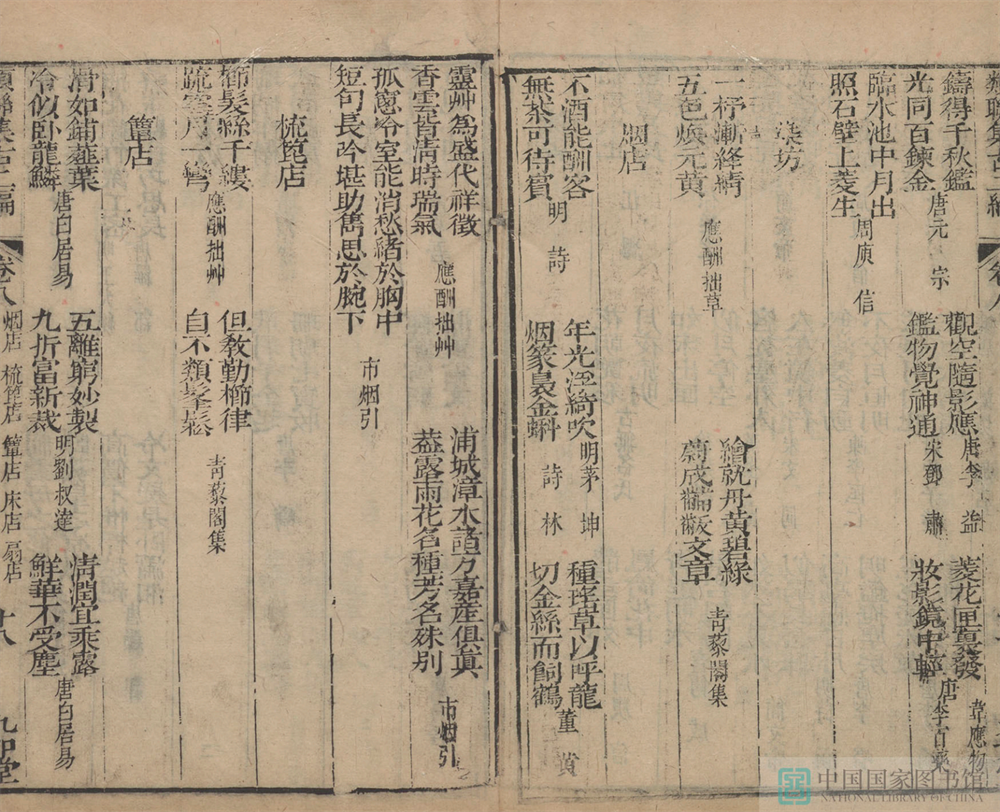 鑄得千秋鑑 觀空隨影應 唐李益 菱花匣裏發 韋應物
光同百鍊金 唐元宗 鑑物覺神通 宋鄧肅 妝影鏡中輕 唐李百藥
臨水池中月出
照石壁上菱生 周庾信
染坊
一杼漸絳綪 繪就丹黃碧綠
五色煥元黃 應酬拙草 蔚成黼黻文章 青藜閣集
烟店
不酒能酬客 年光淫綺吹 明茅坤 種瑤草以呼龍
無茶可待賓 明詩 烟篆裊金蝌 詩林 切金絲而飼鶴 董賁
靈艸為盛代祥徵 浦城漳水諸々嘉產俱眞
香雲皆清時瑞氣 應酬拙艸 葢露雨花名種芳名殊別 市烟引
孤窻冷室能消愁緒於胸中
短句長吟堪助雋思於腕下 市烟引
梳篦店
櫛髮絲千縷 但教勤櫛律
疏雲月一彎 應酬拙艸 自不類髼鬆 青藜閣集
簟店
滑如鋪薤葉 五離窮妙製 清潤宜乘露
冷似卧龍鱗 唐白居易 九折富新裁 明劉叔達 鮮華不受塵 唐白居易
類聯集古二編 卷八 烟店 梳篦店 簟店 床店 扇店 十八 九如堂
中国国家图书馆
NATIONAL LIBRARY OF CHINA